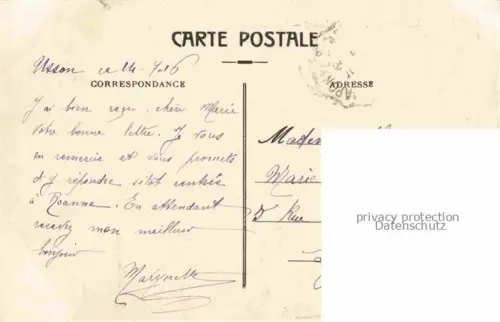 CARTE POSTALE
Usson ce 14-7-16
CORRESPONDANCE
J'ai bien reçu, chère Marie
votre bonne lettre. Je vous
en remercie et vous promets
d'y répondre sitôt rentrés
à Roanne. En attendant
recevez mon meilleur
bonjour
ADRESSE
Marie
5 Rue
privacy protection
Datenschutz